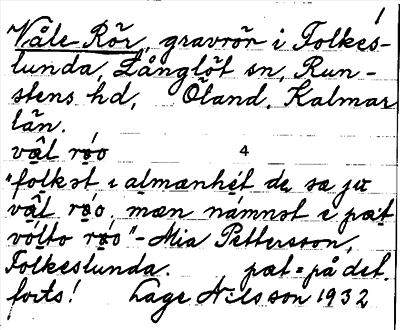 1
Våle Rör, gravrör i Folkes-
lunda, Långlöt sn, Run-
stens hd, Öland. Kalmar
län.
vål røo 4
"folkst ı almænhét de sa ju
vål røo, mæn námnst i pæt
vólto røo" - Mia Pettersson,
Folkeslunda. pæt = på det.
forts! Lage Nilsson 1932